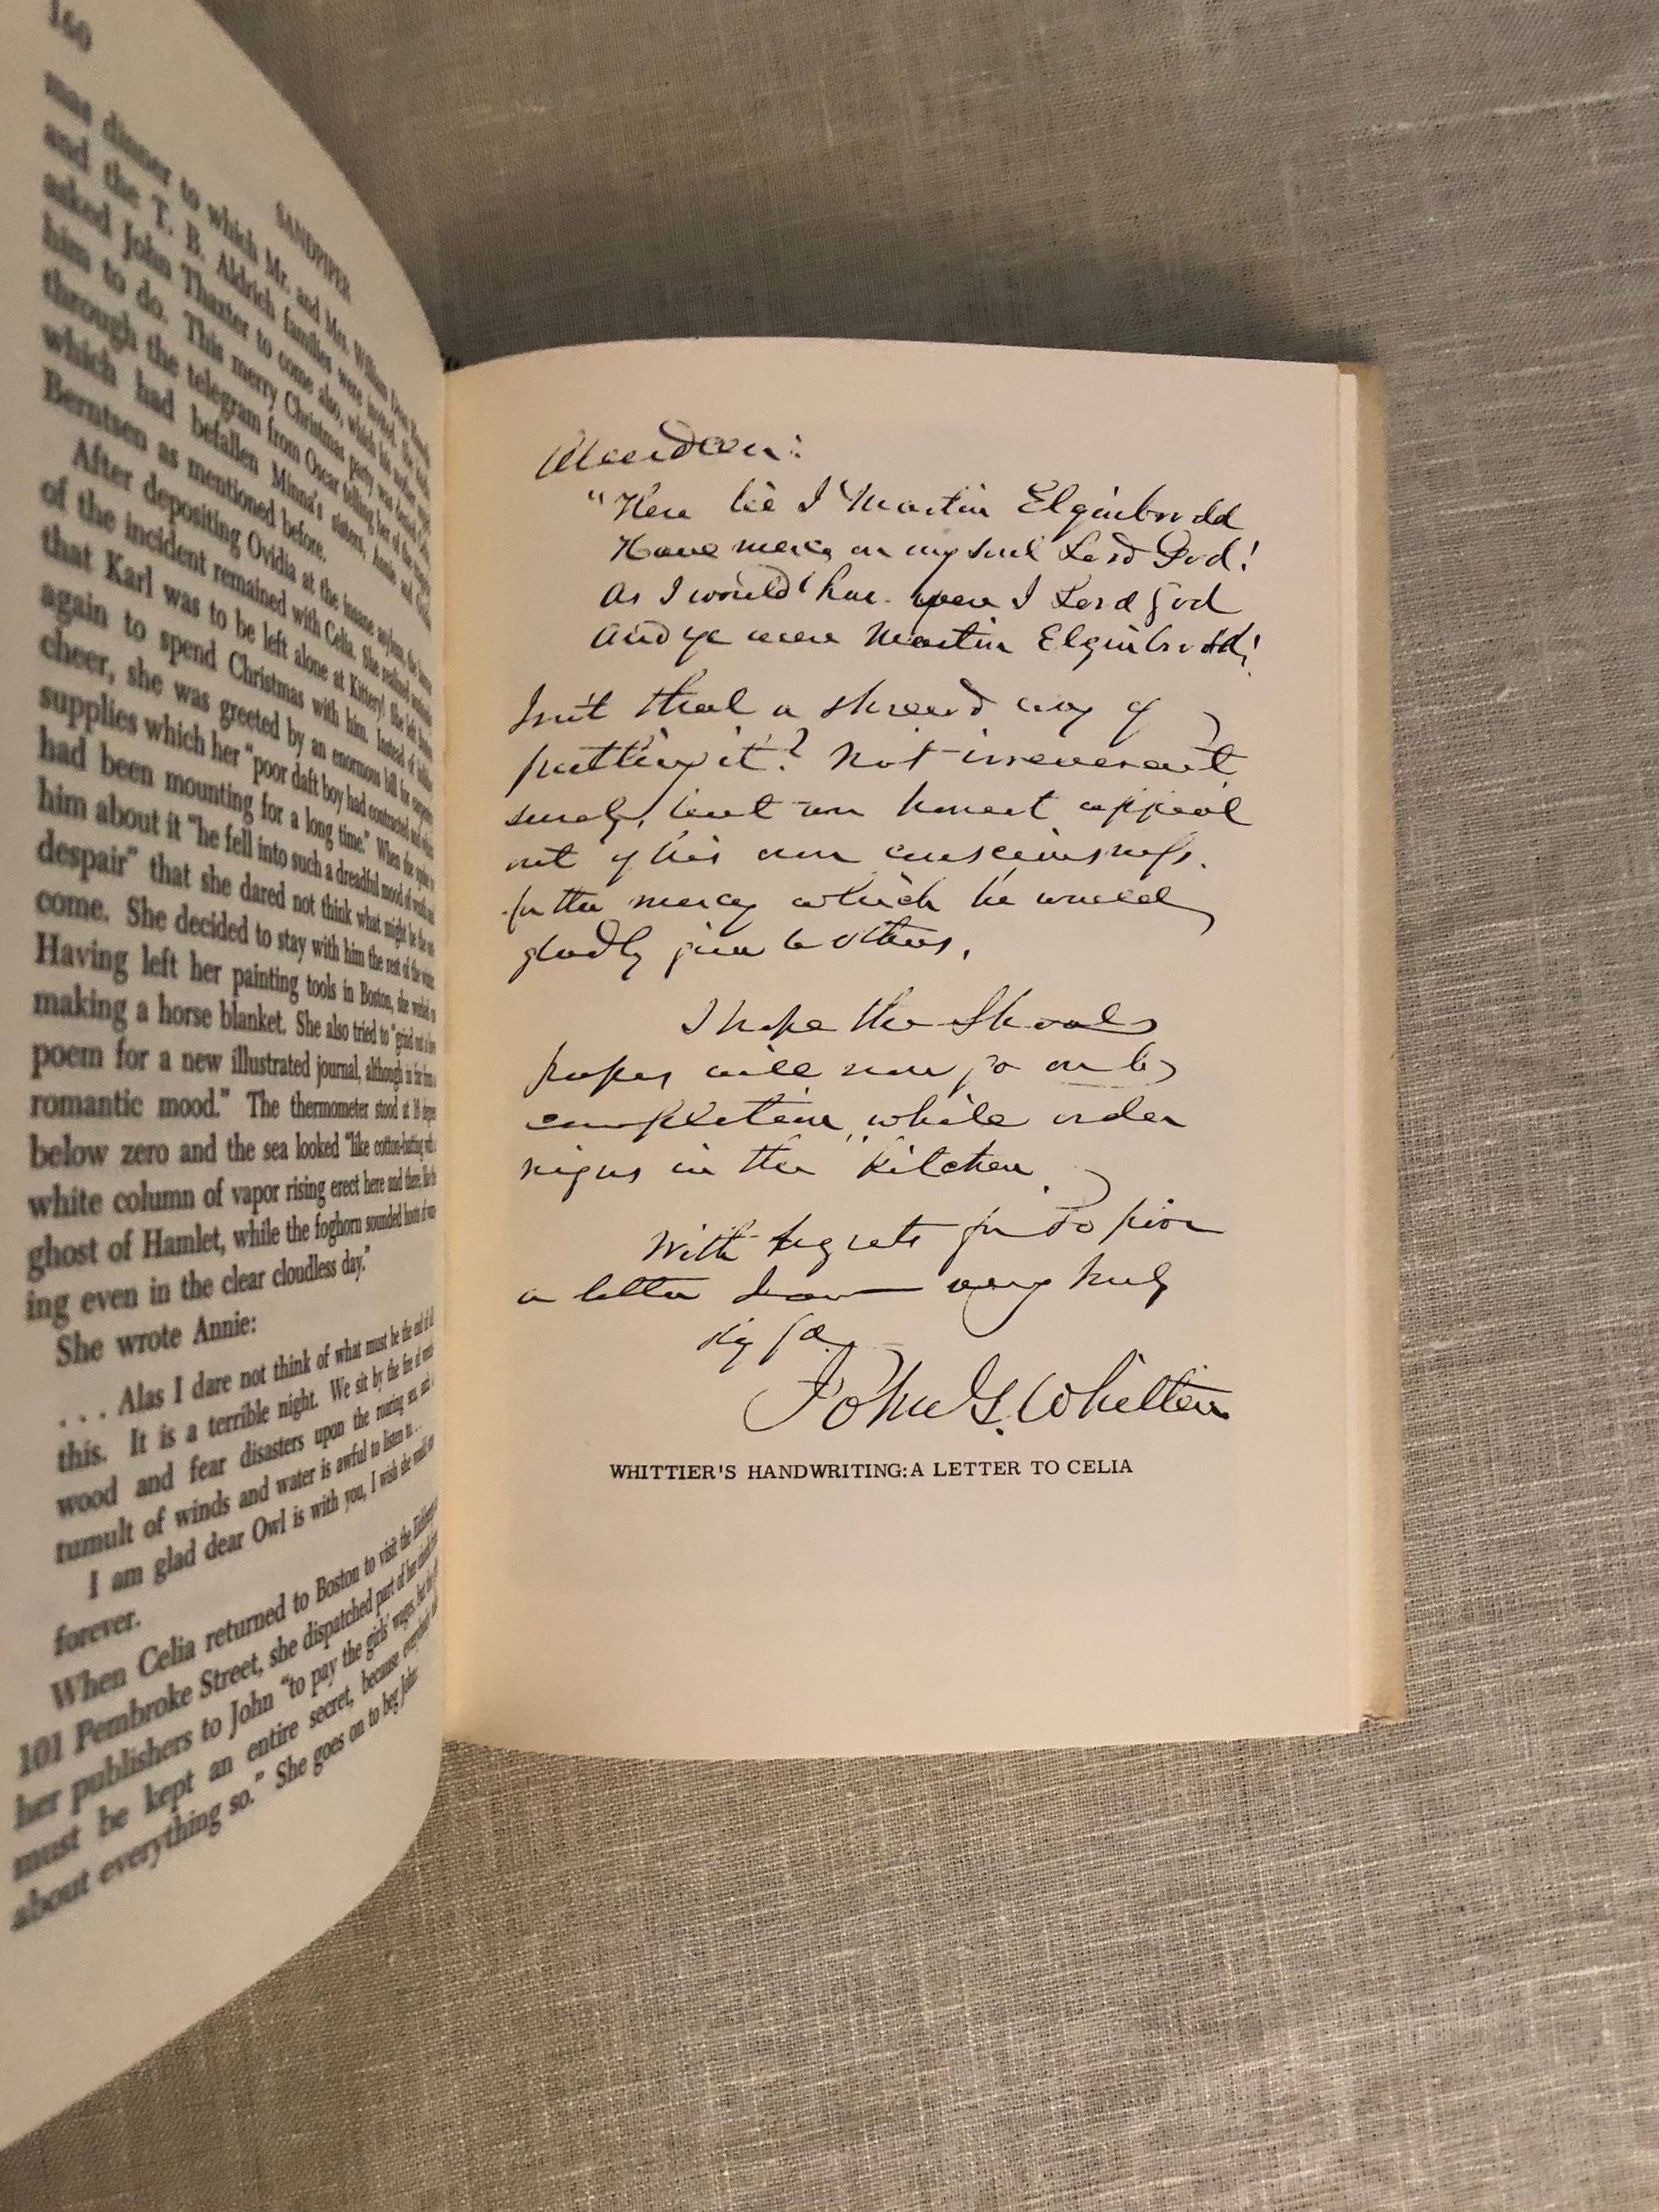 160
SANDPIPER
mas dinner to which Mr. and Mrs. William Dean
and the T. B. Aldrich families were invited. She
asked John Thaxter to come also, which his
him to do. This merry Christmas party was
through the telegram from Oscar telling her of the
which had befallen Minna's sisters, Annie and
Berntsen as mentioned before.
After depositing Ovidia at the insane asylum, the
of the incident remained with Celia. She realized
that Karl was to be left alone at Kittery! She left
again to spend Christmas with him. Instead of
cheer, she was greeted by an enormous bill for
supplies which her "poor daft boy had contracted and
had been mounting for a long time." When she
him about it "he fell into such a dreadful mood of
despair" that she dared not think what might be the
come. She decided to stay with him the rest of the
Having left her painting tools in Boston, she
making a horse blanket. She also tried to "grind out a
poem for a new illustrated journal, although in far from
romantic mood." The thermometer stood at
below zero and the sea looked "like cotton-batting
white column of vapor rising erect here and there, like the
ghost of Hamlet, while the foghorn sounded
ing even in the clear cloudless day."
She wrote Annie:
. . . Alas I dare not think of what must be the end of
this. It is a terrible night. We sit by the fire of
wood and fear disasters upon the roaring sea, and
tumult of winds and water is awful to listen to . . .
I am glad dear Owl is with you, I wish she
forever.
When Celia returned to Boston to visit the
101 Pembroke Street, she dispatched part of her
her publishers to John "to pay the girls' wages, but
must be kept an entire secret, because
about everything so." She goes on to beg John
"Here lie I Martin Elginbrodd
Have mercy on my soul Lord God!
As I would have were I Lord God
And ye were Martin Elginbrodd!
Isn't that a shrewd way of
putting it? Not irreverent
surely, but an honest appeal
out of his own consciousness
for the mercy which he would
gladly give to others.
I hope the Shoals
papers will now go on to
completion, while order
reigns in the kitchen.
With regrets for so poor
a letter I am very truly
thy fd.
John G. Whittier
WHITTIER'S HANDWRITING: A LETTER TO CELIA